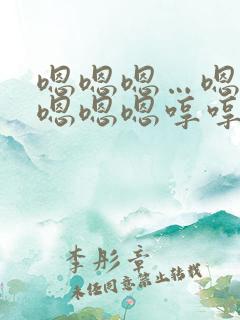 嗯嗯嗯…嗯
嗯嗯嗯哼哼
李彤章
未经同意禁止转载